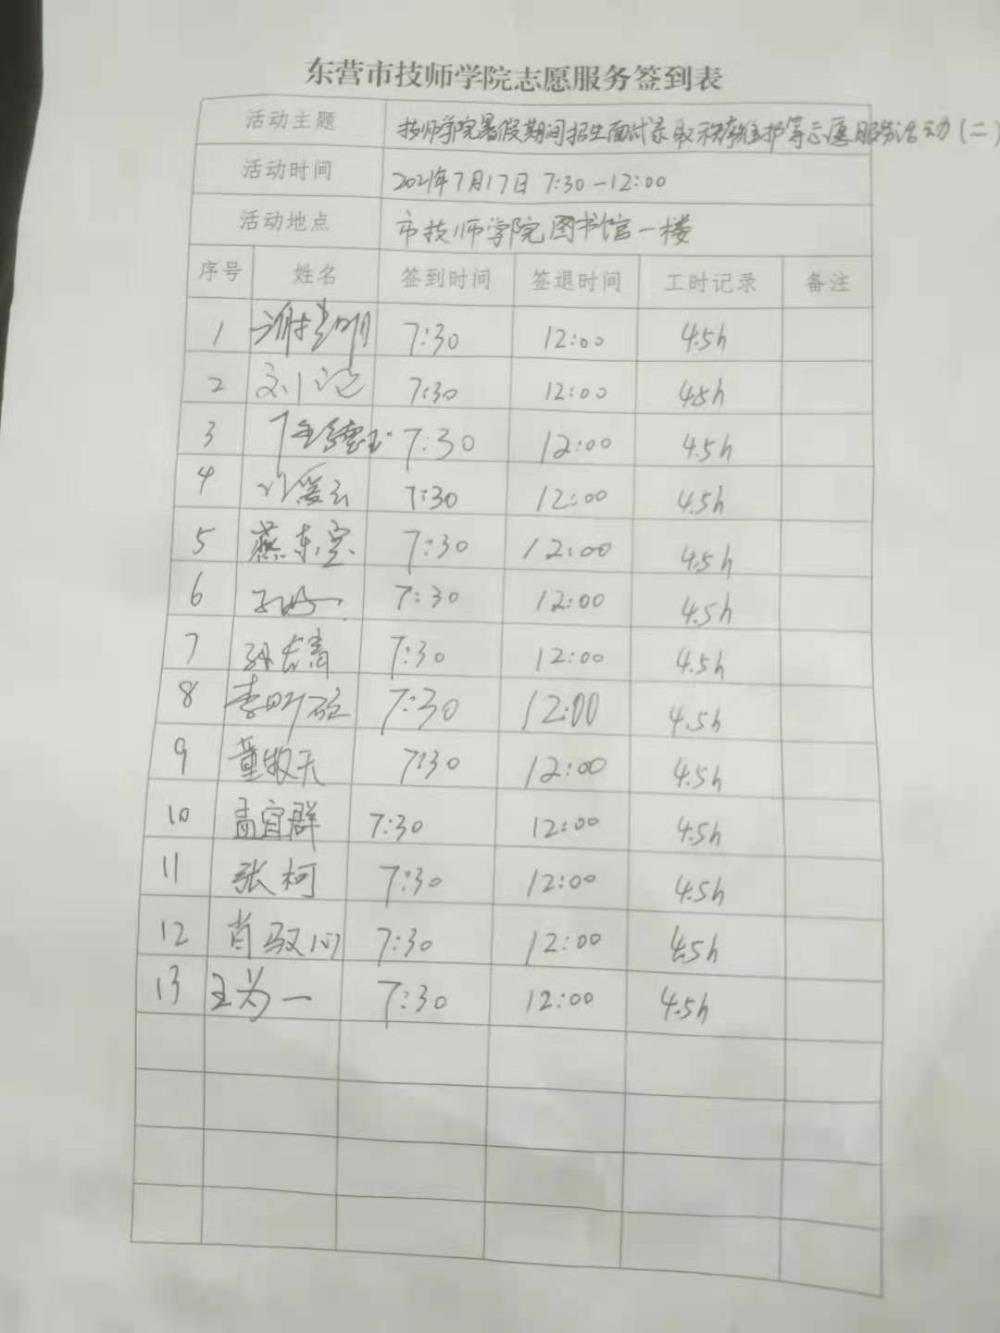 东营市技师学院志愿服务签到表
活动主题 技师学院暑假期间招生面试录取秩序维护等志愿服务活动(二)
活动时间 2021年7月17日 7:30-12:00
活动地点 市技师学院图书馆一楼
序号 姓名 签到时间 签退时间 工时记录 备注
1 7:30 12:00 4.5h
2 7:30 12:00 4.5h
3 7:30 12:00 4.5h
4 7:30 12:00 4.5h
5 燕东宝 7:30 12:00 4.5h
6 7:30 12:00 4.5h
7 孙长青 7:30 12:00 4.5h
8 7:30 12:00 4.5h
9 董牧天 7:30 12:00 4.5h
10 高宜群 7:30 12:00 4.5h
11 张柯 7:30 12:00 4.5h
12 肖驭心 7:30 12:00 4.5h
13 王为一 7:30 12:00 4.5h